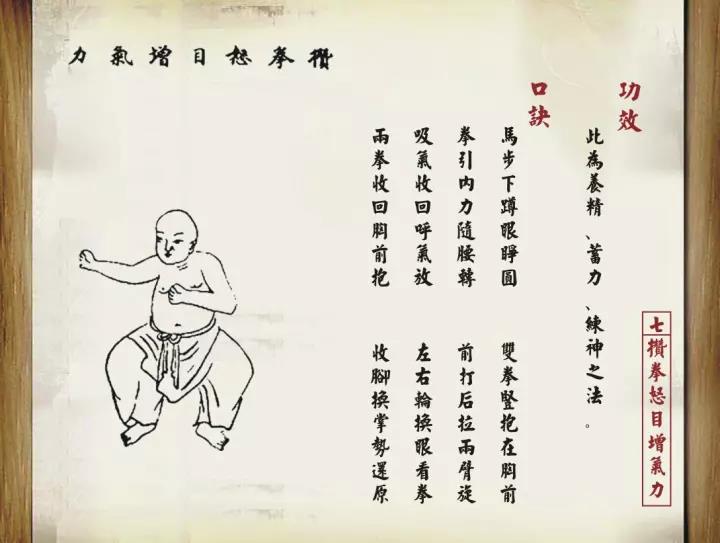 攢拳怒目增氣力
七攢拳怒目增氣力
功效
此為養精、蓄力、練神之法。
口訣
馬步下蹲眼睜圓 雙拳豎抱在胸前
拳引内力隨腰轉 前打后拉兩臂旋
吸氣收回呼氣放 左右輪換眼看拳
兩拳收回胸前抱 收腳換掌勢還原